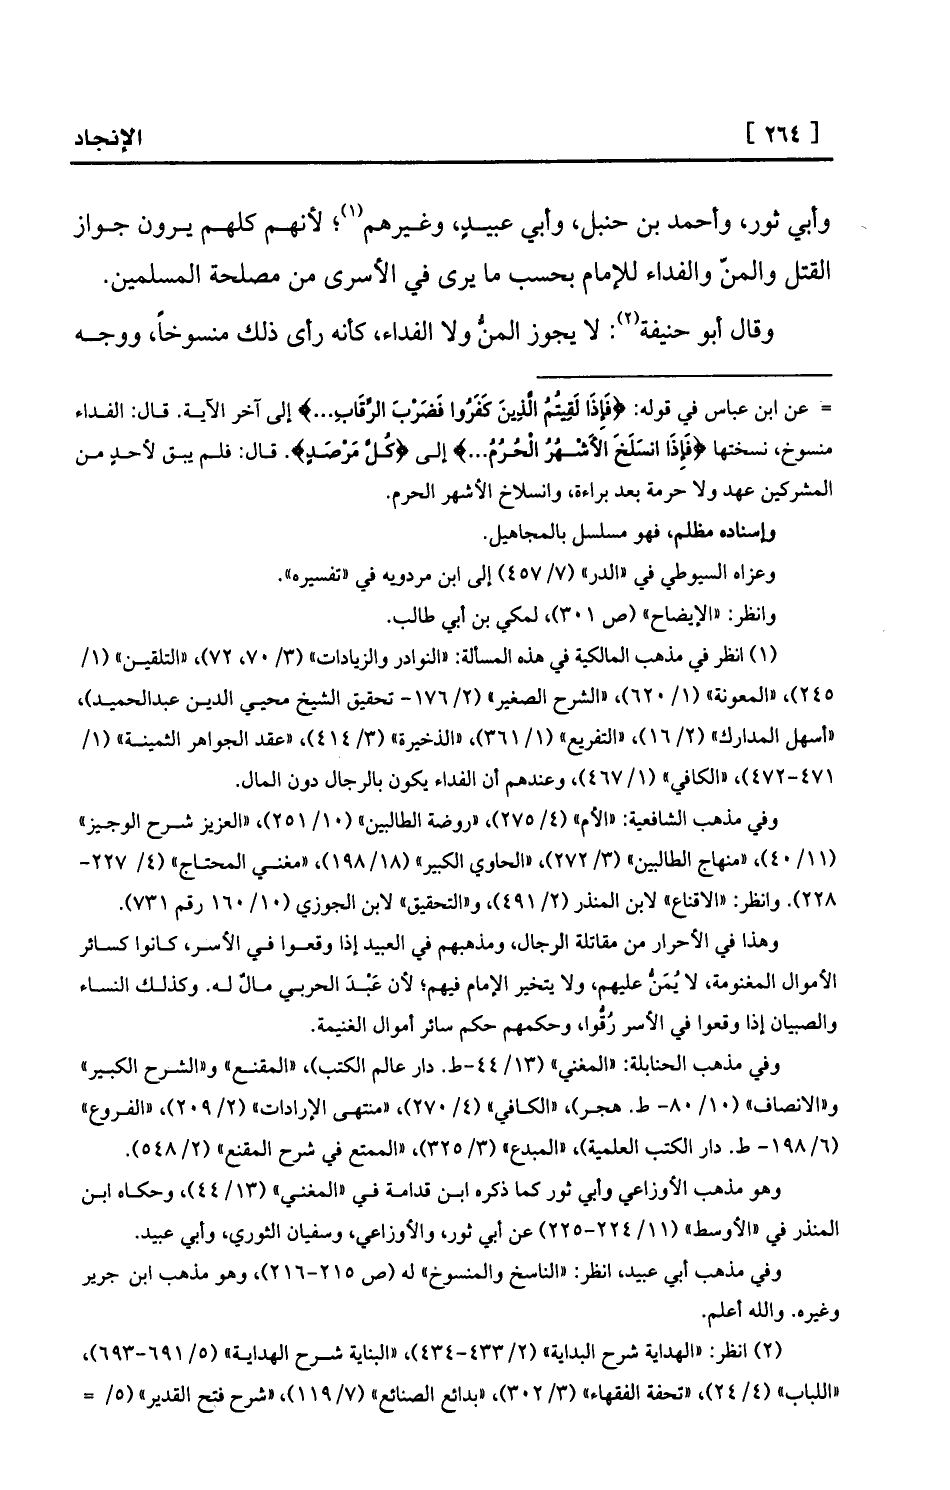 [ ٢٦٤ ] الإنجاد
وأبي ثور، وأحمد بن حنبل، وأبي عبيدٍ، وغيرهم(١)؛ لأنهم كلهم يرون جواز
القتل والمنّ والفداء للإمام بحسب ما يرى في الأسرى من مصلحة المسلمين.
وقال أبو حنيفة(٢): لا يجوز المنُّ ولا الفداء، كأنه رأى ذلك منسوخاً، ووجه
= عن ابن عباس في قوله: ﴿فَإِذَا لَقِيتُمُ الَّذِينَ كَفَرُوا فَضَرْبَ الرِّقَابِ...﴾ إلى آخر الآية. قال: الفداء
منسوخ، نسختها ﴿فَإِذَا انسَلَخَ الأَشْهُرُ الْحُرُمُ...﴾ إلى ﴿كُلَّ مَرْصَدٍ﴾. قال: فلم يبق لأحدٍ من
المشركين عهد ولا حرمة بعد براءة، وانسلاخ الأشهر الحرم.
وإسناده مظلم، فهو مسلسل بالمجاهيل.
وعزاه السيوطي في «الدر» (٧/ ٤٥٧) إلى ابن مردويه في «تفسيره».
وانظر: «الإيضاح» (ص ٣٠١)، لمكي بن أبي طالب.
(١) انظر في مذهب المالكية في هذه المسألة: «النوادر والزيادات» (٣/ ٧٠، ٧٢)، «التلقين» (١/
٢٤٥)، «المعونة» (١/ ٦٢٠)، «الشرح الصغير» (٢/ ١٧٦- تحقيق الشيخ محيي الدين عبدالحميد)،
«أسهل المدارك» (٢/ ١٦)، «التفريع» (١/ ٣٦١)، «الذخيرة» (٣/ ٤١٤)، «عقد الجواهر الثمينة» (١/
٤٧١-٤٧٢)، «الكافي» (١/ ٤٦٧)، وعندهم أن الفداء يكون بالرجال دون المال.
وفي مذهب الشافعية: «الأم» (٤/ ٢٧٥)، «روضة الطالبين» (١٠/ ٢٥١)، «العزيز شرح الوجيز»
(١١/ ٤٠)، «منهاج الطالبين» (٣/ ٢٧٢)، «الحاوي الكبير» (١٨/ ١٩٨)، «مغني المحتاج» (٤/ ٢٢٧-
٢٢٨). وانظر: «الاقناع» لابن المنذر (٢/ ٤٩١)، و«التحقيق» لابن الجوزي (١٠/ ١٦٠ رقم ٧٣١).
وهذا في الأحرار من مقاتلة الرجال، ومذهبهم في العبيد إذا وقعوا في الأسر، كانوا كسائر
الأموال المغنومة، لا يُمَنُّ عليهم، ولا يتخير الإمام فيهم؛ لأن عَبْدَ الحربي مالٌ له. وكذلك النساء
والصبيان إذا وقعوا في الأسر رُقُّوا، وحكمهم حكم سائر أموال الغنيمة.
وفي مذهب الحنابلة: «المغني» (١٣/ ٤٤-ط. دار عالم الكتب)، «المقنع» و«الشرح الكبير»
و«الانصاف» (١٠/ ٨٠- ط. هجر)، «الكافي» (٤/ ٢٧٠)، «منتهى الإرادات» (٢/ ٢٠٩)، «الفروع»
(٦/ ١٩٨- ط. دار الكتب العلمية)، «المبدع» (٣/ ٣٢٥)، «الممتع في شرح المقنع» (٢/ ٥٤٨).
وهو مذهب الأوزاعي وأبي ثور كما ذكره ابن قدامة في «المغني» (١٣/ ٤٤)، وحكاه ابن
المنذر في «الأوسط» (١١/ ٢٢٤-٢٢٥) عن أبي ثور، والأوزاعي، وسفيان الثوري، وأبي عبيد.
وفي مذهب أبي عبيد، انظر: «الناسخ والمنسوخ» له (ص ٢١٥-٢١٦)، وهو مذهب ابن جرير
وغيره. والله أعلم.
(٢) انظر: «الهداية شرح البداية» (٢/ ٤٣٣-٤٣٤)، «البناية شرح الهداية» (٥/ ٦٩١-٦٩٣)،
«اللباب» (٤/ ٢٤)، «تحفة الفقهاء» (٣/ ٣٠٢)، «بدائع الصنائع» (٧/ ١١٩)، «شرح فتح القدير» (٥/ =